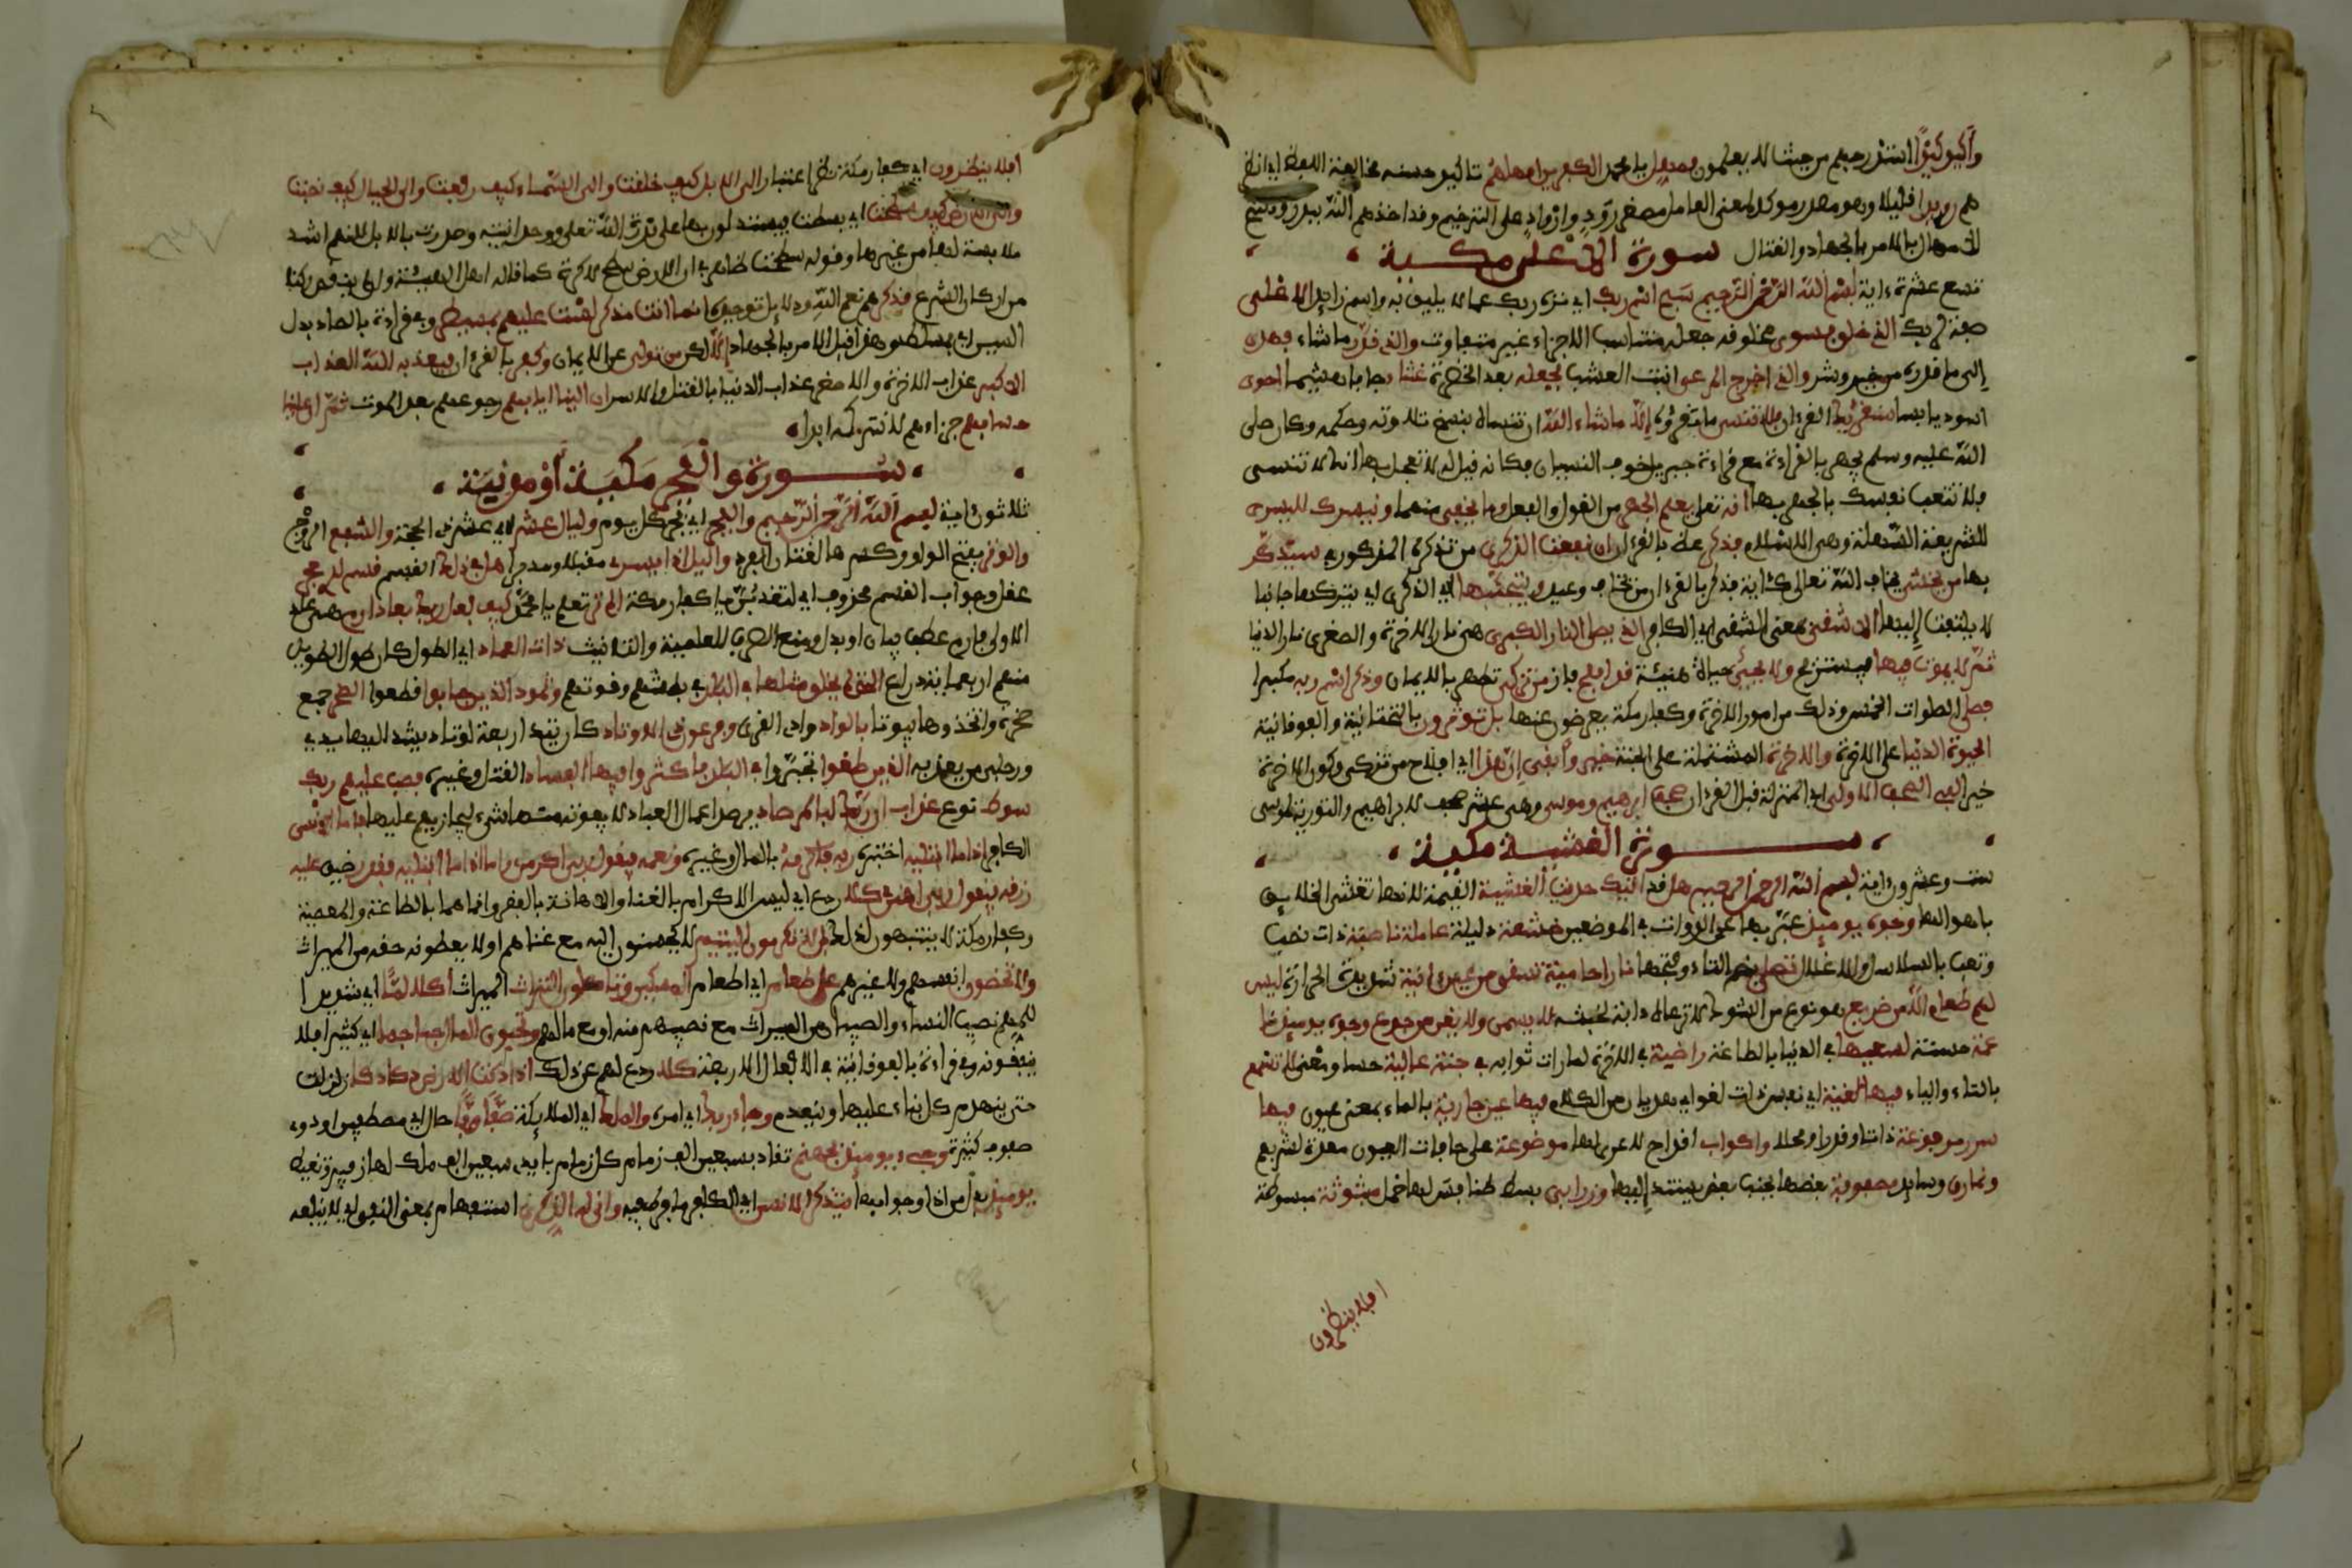 وأكيد كيدا استدرجهم من حيث لا يعلمون فمهل يا محمد الكفرين امهلهم تاكيد حسنه مخالفة اللفظ اي انظر
هم رويدا قليلا وهو مصدر موكد لمعنى العامل مصغر رود او ارواد على الترخيم وقد اخذهم الله ببدر ونسخ
الامهال بالامر بالجهاد والقتال سورة الاعلى مكية
تسع عشرة ءاية بسم الله الرحمن الرحيم سبح اسم ربك اي نزه ربك عما لا يليق به واسم زايد الاعلى
صفة لربك الذي خلق فسوى مخلوقه جعله متناسب الاجزاء غير متفاوت والذي قدر ما شاء فهدى
إلى ما قدره من خير وشر والذي اخرج المرعى انبت العشب فجعله بعد الخضرة غثاء جافا هشيما احوى
اسود يابسا سنقرئك القرءان فلا تنسى ما تقرؤه إلا ما شاء الله ان تنساه بنسخ تلاوته وحكمه وكان صلى
الله عليه وسلم يجهر بالقراءة مع قراءة جبريل خوف النسيان فكانه قيل له لا تعجل بها انك لا تنسى
فلا تتعب نفسك بالجهر بها انه تعلى يعلم الجهر من القول والفعل وما يخفى منهما ونيسرك لليسرى
للشريعة السهلة وهي الاسلام فذكر عظ بالقرءان ان نفعت الذكرى من تذكره المذكور في سيذكر
بها من يخشى يخاف الله تعالى كئاية فذكر بالقرءان من يخاف وعيد ويتجنبها اي الذكرى اي يتركها جانبا
لا يلتفت إليها الاشقى بمعنى الشقي اي الكافر الذي يصلى النار الكبرى هي نار الاخرة والصغرى نار الدنيا
ثم لا يموت فيها فيستريح ولا يحيى حياة هنيئة قد افلح فاز من تزكى تطهر بالايمان وذكر اسم ربه مكبرا
فصلى الصلوات الخمس وذلك من امور الاخرة وكفار مكة يعرضون عنها بل توثرون بالتحتانية والفوقانية
الحيوة الدنيا على الاخرة والاخرة المشتملة على الجنة خير وأبقى إن هذا اي افلاح من تزكى وكون الاخرة
خير الفي الصحف الاولى اي المنزلة قبل القرءان صحف ابرهيم وموسى وهي عشر صحف لابراهيم والتورية لموسى
سورة الغشية مكية
ست وعشرون ءاية بسم الله الرحمن الرحيم هل قد اتيك حديث الغشية القيمة لانها تغشى الخلايق
باهوالها وجوه يوميذ عبر بها عن الذوات في الموضعين خشعة ذليلة عاملة ناصبة ذات نصب
وتعب بالسلاسل والاغلال تصلى بضم التاء وفتحها نارا حامية تسقى من عين ءانية شديدة الحرارة ليس
لهم طعام الا من ضريع هو نوع من الشوك لا ترعاه دابة لخبثه لا يسمن ولا يغني من جوع وجوه يوميذ نا
عمة حسنة لسعيها في الدنيا بالطاعة راضية في الاخرة لما رات ثوابه في جنة عالية حسا ومعنى لا تسمع
بالتاء والياء فيها لغية اي نفس ذات لغو اي هذيان من الكلام فيها عين جارية بالماء بمعنى عيون فيها
سرر مرفوعة ذاتا وقدرا ومحلا واكواب اقداح لا عرى لها موضوعة على حافات العيون معدة لشربهم
ونمارق وسايد مصفوفة بعضها بجنب بعض يستند إليها وزرابي بسط طنافس لها خمل مبثوثة مبسوطة
افلا ينظرون
افلا ينظرون اي كفار مكة نظر اعتبار الى الابل كيف خلقت والى السماء كيف رفعت والى الجبال كيف نصبت
والى الارض كيف سطحت اي بسطت فيستدلون بها على قدرة الله تعلى ووحدانيته وصدرت بالابل لانهم اشد
ملابسة لها من غيرها وقوله سطحت ظاهر في ان الارض سطح لا كرة كما قاله اهل الهيئة وان لم ينقض ركنا
من اركان الشرع فذكرهم نعم الله ودلايل توحيده انما انت مذكر لست عليهم بمسيطر وفي قراءة بالصاد بدل
السين اي بمسلط وهذا قبل الامر بالجهاد إلا لكن من تولى عن الايمان وكفر بالقرءان فيعذبه الله العذاب
الاكبر عذاب الاخرة والاصغر عذاب الدنيا بالقتل والاسر ان الينا ايابهم رجوعهم بعد الموت ثم ان علينا
حسابهم جزاءهم لا نتركه ابدا
سورة والفجر مكية أو مدنية
ثلاثون ءاية بسم الله الرحمن الرحيم والفجر اي فجر كل يوم وليال عشر اي عشر ذي الحجة والشفع الزوج
والوتر بفتح الواو وكسرها لغتان الفرد واليل اذا يسر مقبلا ومدبرا هل في ذلك القسم قسم لذي حجر
عقل وجواب القسم محذوف اي لتعذبن يا كفار مكة الم تر تعلم يا محمد كيف فعل ربك بعاد ارم هي عاد
الاولى فارم عطف بيان او بدل ومنع الصرف للعلمية والتانيث ذات العماد اي الطول كان طول الطويل
منهم اربعماية ذراع التي لم يخلق مثلها في البلاد في بطشهم وقوتهم وثمود الذين جابوا قطعوا الصخر جمع
صخرة واتخذوها بيوتا بالواد وادي القرى وفرعون ذي الاوتاد كان يتد اربعة اوتاد يشد اليها يدي
ورجلي من يعذبه الذين طغوا تجبروا في البلاد فاكثروا فيها الفساد القتل وغيره فصب عليهم ربك
سوط نوع عذاب ان ربك لبالمرصاد يرصد اعمال العباد لا يفوته منها شيء ليجازيهم عليها فاما الانسن
الكافر اذا ما ابتليه اختبره ربه فاكرمه بالمال وغيره ونعمه فيقول ربي اكرمن واما اذا ما ابتليه فقدر ضيق عليه
رزقه فيقول ربي اهنن كلا ردع اي ليس الاكرام بالغنا والاهانة بالفقر وانما هما بالطاعة والمعصية
وكفار مكة لا ينتبهون لذلك بل لا تكرمون اليتيم لا يحسنون اليه مع غناهم او لا يعطونه حقه من الميراث
ولا تحضون انفسهم ولا غيرهم على طعام اي اطعام المسكين وتاكلون التراث الميراث أكلا لما اي شديدا
للمهم نصيب النساء والصبيان من الميراث مع نصيبهم منه او مع مالهم وتحبون المال حبا جما اي كثيرا فلا
ينفقونه وفي قراءة بالفوقانية في الافعال الاربعة كلا ردع لهم عن ذلك اذا دكت الارض دكا دكا زلزلت
حتى ينهدم كل بناء عليها وينعدم وجاء ربك اي امره والملك اي الملايكة صفا صفا حال اي مصطفين او ذوي
صفوف كثيرة وجيء يوميذ بجهنم تقاد بسبعين الف زمام كل زمام بايدي سبعين الف ملك لها زفير وتغيظ
يوميذ بدل من اذا وجوابها يتذكر الانسن اي الكافر ما فرط فيه وانى له الذكرى استفهام بمعنى النفي اي لا ينفعه